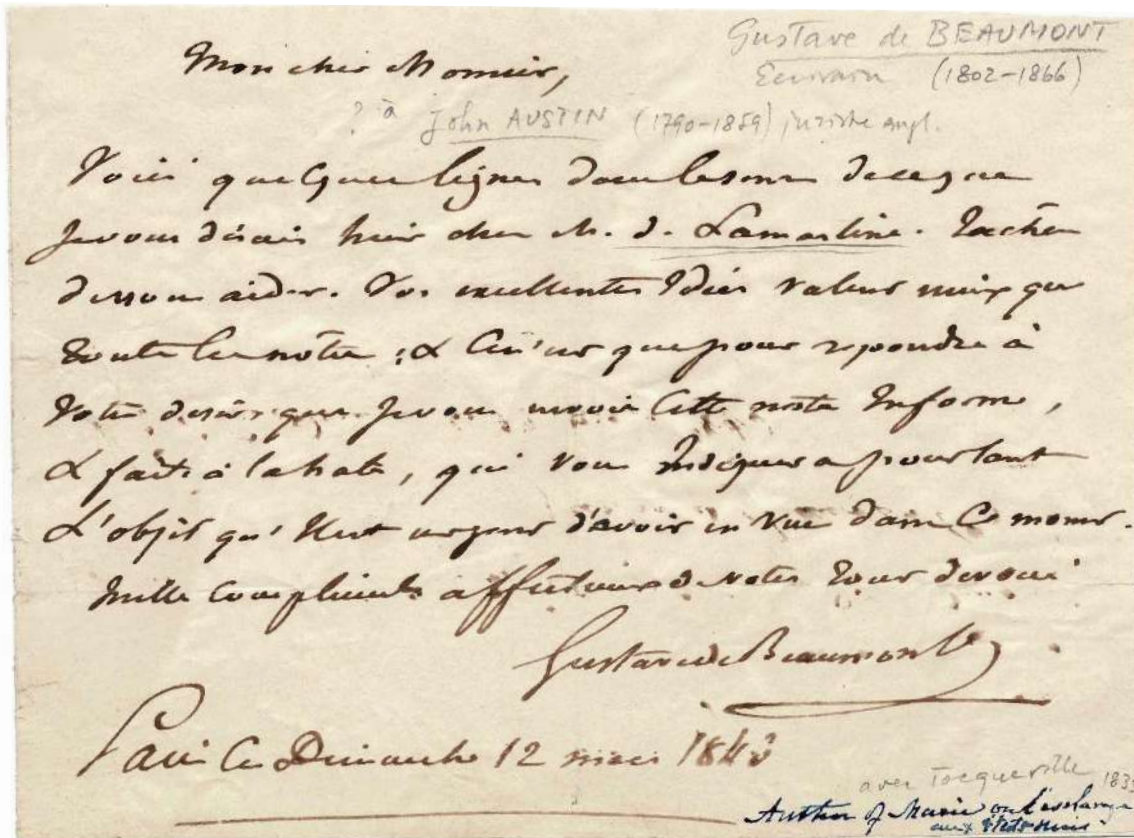 Gustave de BEAUMONT
Mon cher Monsieur,
Ecrivain (1802-1866)
? à John AUSTIN (1790-1859) juriste angl.
Voici quelques lignes dans le sens de ce que
Je vous disais hier chez M. de Lamartine. Tachez
de vous aider. Vos excellentes Idées valent mieux que
toutes les notres ; & Ce n'est que pour repondre à
Votre desir que Je vous envoie Cette note Informe,
& faite à la hate, qui vous Indiquera pourtant
L'objet qu'Il est urgent d'avoir en Vue dans Ce moment.
Mille compliments affectueux de votre tout devoué
Gustave de Beaumont
Paris Ce Dimanche 12 mars 1843
avec Tocqueville 1835
Author of Marie ou l'esclavage
aux Etats Unis.